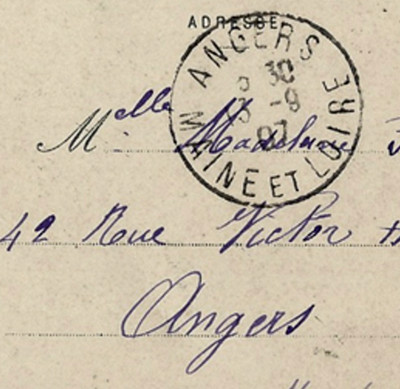 ADRESSE
ANGERS
30
-9
07
MAINE ET LOIRE
Melle Madeleine
42 Rue Victor H
Angers